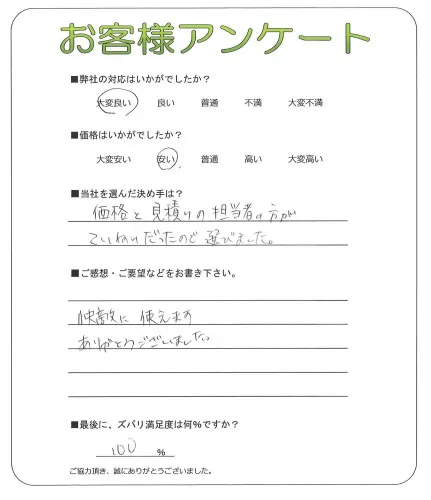 お客様アンケート
■弊社の対応はいかがでしたか？
大変良い 良い 普通 不満 大変不満
■価格はいかがでしたか？
大変安い 安い 普通 高い 大変高い
■当社を選んだ決め手は？
価格と見積りの担当者の方が
ていねいだったので選びました。
■ご感想・ご要望などをお書き下さい。
快敵に使えます
ありがとうございました。
■最後に、ズバリ満足度は何%ですか？
100 %
ご協力頂き、誠にありがとうございました。